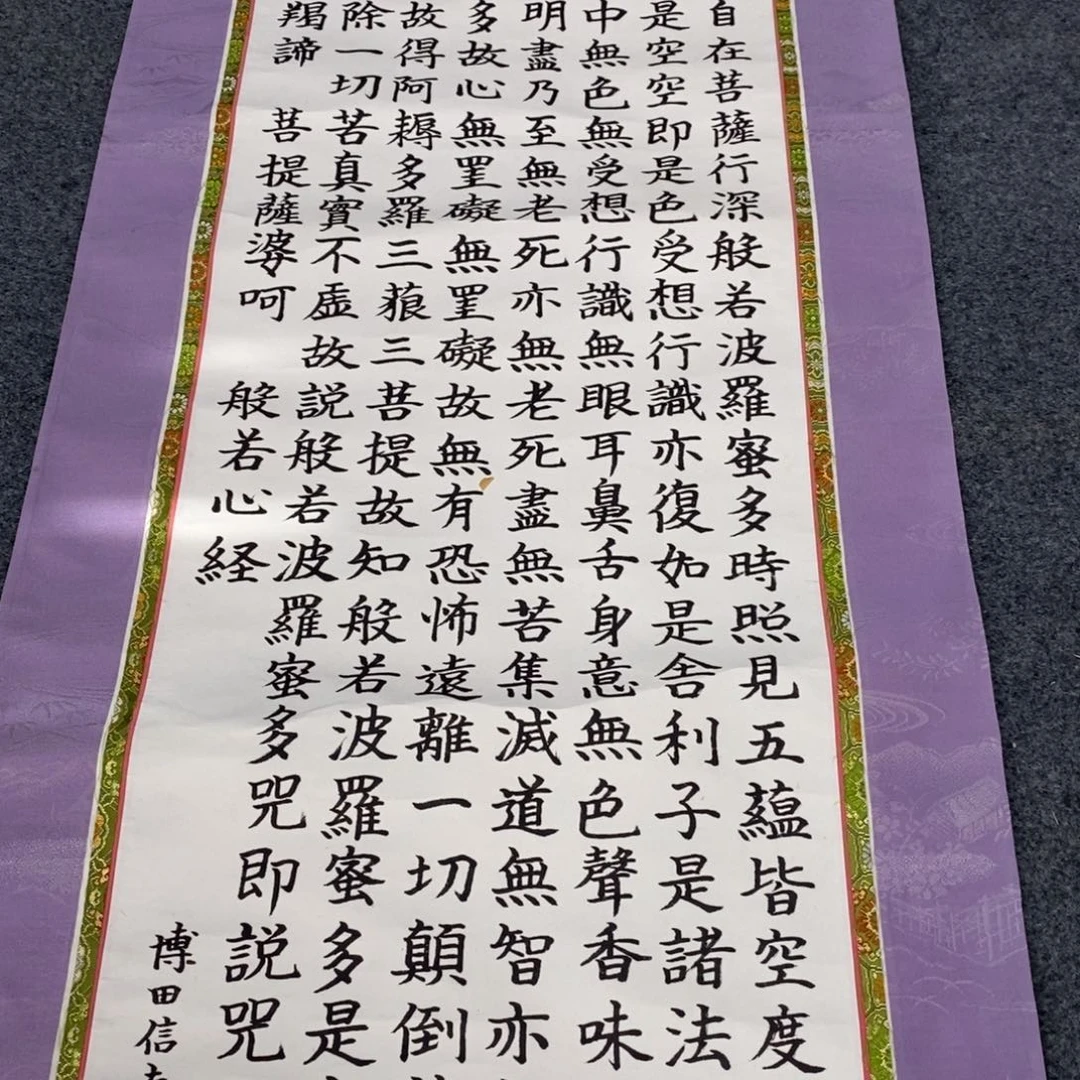 自在菩薩行深般若波羅蜜多時照見五蘊皆空度
是空空即是色受想行識亦復如是舎利子是諸法
中無色無受想行識無眼耳鼻舌身意無色聲香味
明盡乃至無老死亦無老死盡無苦集滅道無智亦
多故心無罣礙無罣礙故無有恐怖遠離一切顛倒
故得阿耨多羅三藐三菩提故知般若波羅蜜多是
除一切苦真實不虚故説般若波羅蜜多咒即説咒
羯諦 菩提薩婆呵 般若心経
博田信